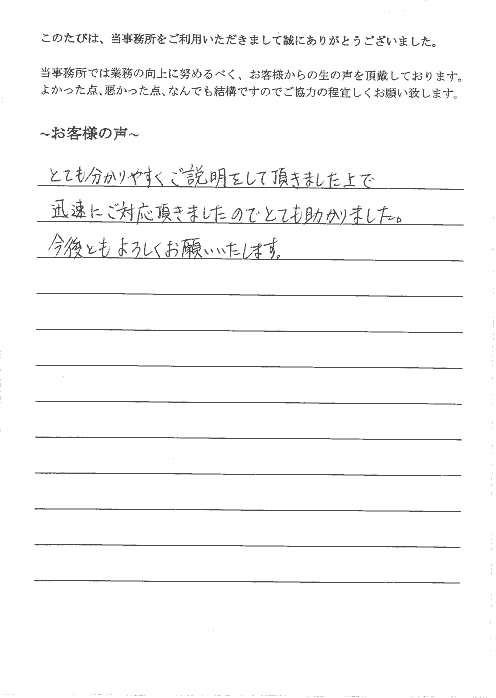 このたびは、当事務所をご利用いただきまして誠にありがとうございました。
当事務所では業務の向上に努めるべく、お客様からの生の声を頂戴しております。
よかった点、悪かった点、なんでも結構ですのでご協力の程宜しくお願い致します。
～お客様の声～
とても分かりやすくご説明をして頂きました上で
迅速にご対応頂きましたのでとても助かりました。
今後ともよろしくお願いいたします。